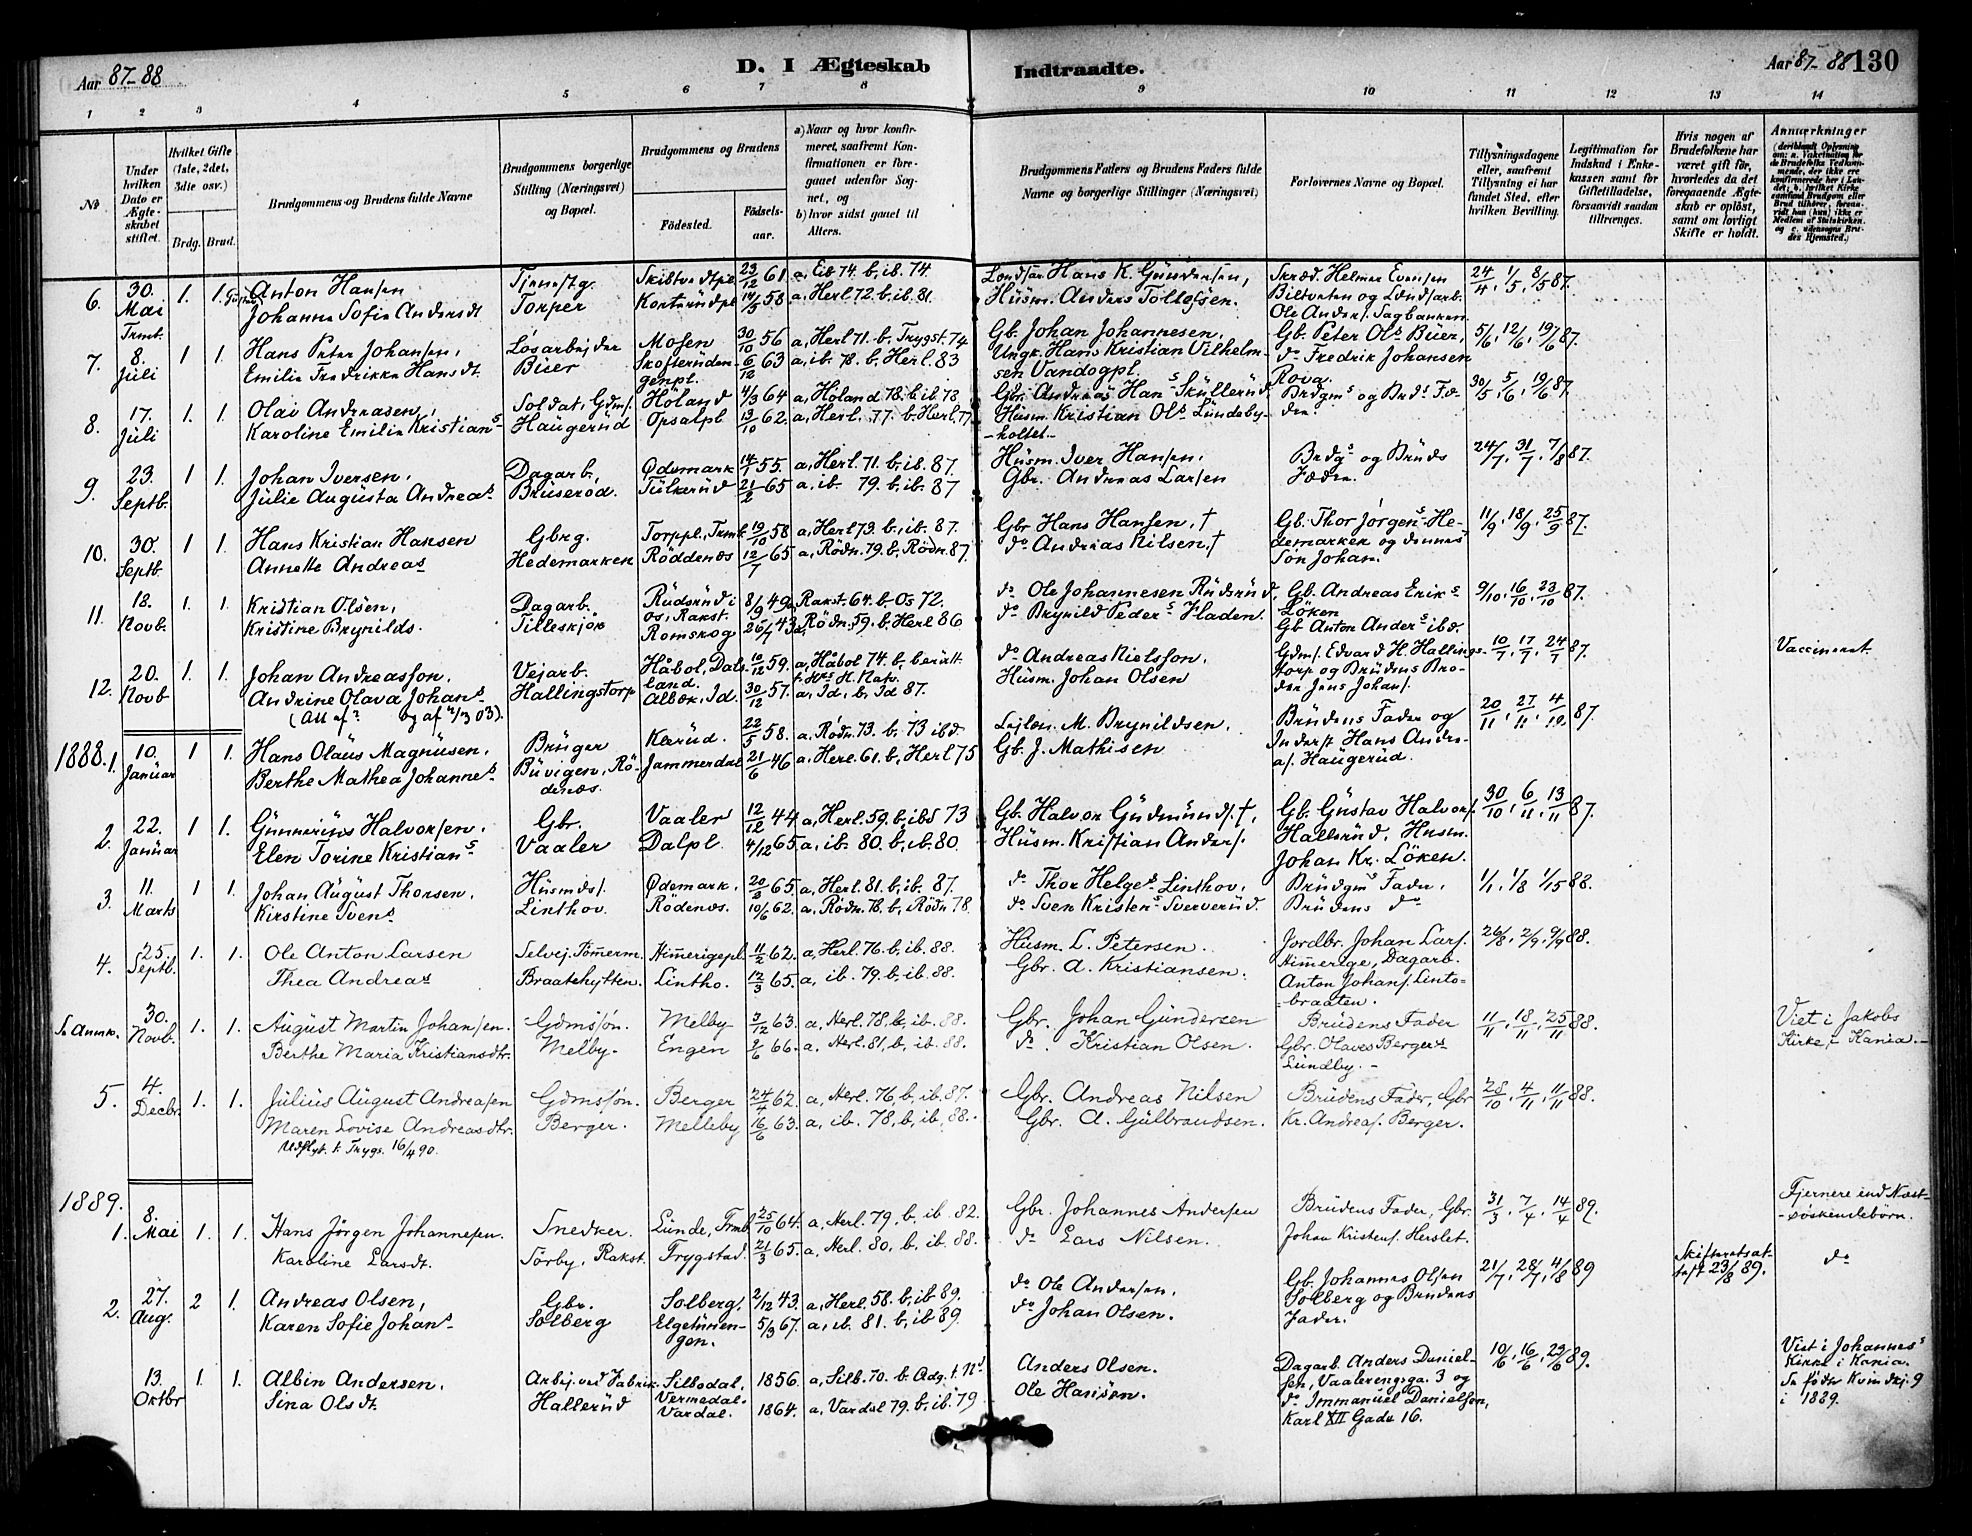 Aar 87-88
D. I Ægteskab
Indtraadte.
Aar 87-88 130
1 2 3 4 5 6 7 8 9 10 11 12 13 14
No
Under hvilken Dato er Ægteskabet stiftet.
Hvilket Gifte (1ste, 2det, 3die osv.)
Brdg. Brud.
Brudgommens og Brudens fulde Navne
Brudgommens borgerlige Stilling (Næringsvei) og Bopæl.
Brudgommens og Brudens
Födested. Födsels-aar.
a) Naar og hvor konfirmeret, saafremt Konfirmationen er foregaaet udenfor Sognet, og
b) hvor sidst gaaet til Alters.
Brudgommens Faders og Brudens Faders fulde Navne og borgerlige Stillinger (Næringsvei)
Forlovernes Navne og Bopæl.
Tillysningsdagene eller, saafremt Tillysning ei har fundet Sted, efter hvilken Bevilling.
Legitimation for Indskud i Enkekassen samt for Giftetilladelse, forsaavidt saadan tiltrænges.
Hvis nogen af Brudefolkene har været gift för, hvorledes da det foregaaende Ægteskab er oplöst, samt om lovligt Skifte er holdt.
Anmærkninger
6. 30. Mai 1. 1. Anton Hansen Tjenestg. 23/12 61. a, Eids 74. b, ib. 74. Hans K. Gundersen, Skræd. Helmer Evensen 24/4, 1/5, 8/5 87.
Johanne Sofie Andersdt Torper 14/3 58 a, Herl 72. b, ib. 81. Husm. Anders Tollofsen.
Ole Anders.
Trmb.
7. 8. Juli 1 1. Hans Peter Johansen, Løsarbejder Mosen 30/10 56 a, Herl 71. b. Trygst. 74 Gb. Johan Johannesen, Gb. Peter Ols Buer, 5/6, 12/6, 19/6 87.
Emilie Fredrikke Hansdt. Buer Skofteruden- 6/12 63 a, ib. 78. b, Herl. 83 Ungk. Hans Kristian Vilhelm- do Fredrik Johansen
genpl. sen Vandogpl. Rova.
8. 17. Juli 1. 1. Olai Andreasen, Soldat, Gdms. Höland 4/3 64 a, Höland 78. b. ib. 78 Gbr. Andreas Hans Skullerud 30/5, 5/6, 19/6 87.
Karoline Emilie Kristians Haugerud Opsalpl 13/10 62. a, Herl. 77. b. Herl. 77. Husm. Kristian Ols Lundeby-
-holtet.
9. 23. Septb. 1 1. Johan Iversen, Dagarb. Ødemark 14/7 55. a, Herl. 71. b. ib. 87. Husm. Iver Hansen, Brdgs og Bruds 24/7, 31/7, 7/8 87.
Julie Augusta Andreas. Bruserod. Tulkerud 21/2 65 a. ib. 79. b, ib. 87 Gbr. Andreas Larsen Fædre.
10. 30. Septb. 1 1. Hans Kristian Hansen Gbrg. Torppl., Trmb. 19/10 58 a, Herl 73. b, ib. 87. Gbr Hans Hansen, † Gb. Thor Jørgens He- 11/9, 18/9, 25/9 87.
Annette Andreas Hedemarken Röddenæs 12/7 65 a, Rödn. 79. b, Rödn. 87. do Andreas Nilsen, † demarken og dennes
Søn Johan.
11. 18. Novb. 1. 1. Kristian Olsen, Dagarb. Rudsrud i 8/9 49 Rakst. 64. b. Os 72. do Ole Johannesen Rudsrud, Gb. Andreas Eriks 9/10, 16/10, 23/10 87.
Kristine Brynilds. Tilleskjør Os, Rakst. Romskog 26/7 43 Rödn. 59. b, Herl 86 do Brynild Peders Fladen. Löken
Gb Anton Anders ibd.
12. 20. Novb 1. 1. Johan Andreasson, Vejarb. Håbol, Dals- land. 10/12 59. a, Håbol 74. b, do Andreas Nielsson, Gdms. Edvard H. Hallings- 10/7, 17/7, 24/7 87. Vaccineret.
Andrine Olava Johans Hallingstorp Albek, Id. 30/12 57. a. Id, b, Id 87. Husm. Johan Olsen torp og Brudens Bro-
der Jens Johans.
1888. 1. 10. Januar 1 1. Hans Olaus Magnusen, Bruger Karud. 22/5 58. a. Rödn. 73. b. 73 ibd. M. Brynildsen, Brudens Fader og 20/11, 27/11, 4/12 87
Berthe Mathea Johannes Buvigen, Rö- denæs. Jammerdal 21/6 46 a, Herl. 61. b, Herl 75 Gb. J. Mathisen Inderst Hans Andre-
as. Haugerud.
2. 22. Januar 1 1. Gunnerius Halvorsen, Gbr. Vaaler 12/12 44 a, Herl. 59. b, ibd 73 Gb. Halvor Gudmunds. †, Gb. Gustav Halvors. 30/10, 6/11, 13/11 87.
Elen Torine Kristians Vaaler Dalpl. 4/12 65 a, ib. 80. b, ib. 80. Husm. Kristian Anders. Hallerud, Husm.
Johan Kr. Löken.
3. 11. Marts 1 1. Johan August Thorsen, Husmds. Ødemark. 20/2 65 a, Herl. 81. b, ib. 87. do Thor Helges Linthov. Brudgms Fader, 1/1, 1/8, 1/15 88.
Kirstine Svens Linthov. Rödenæs. 10/6 62. a. Rödn. 78. b, Rödn 78. do Sven Kristens Sververud. Brudens do
4. 25. Septb. 1. 1. Ole Anton Larsen Selvej. Tömerm. Himerigepl. 11/2 62. a, Herl. 76. b, ib. 88. Husm. L. Petersen. Jordbr. Johan Lars. 26/8, 2/9, 9/9 88.
Thea Andreas Braatehytten. Lintho. 12/3 65. a, ib. 79. b. ib. 88. Gbr. A. Kristiansen. Himerige, Dagarb.
Anton Johans. Linto-
=braaten.
Se Anmk. 30. Novb. 1. 1. August Martin Johansen. Gdmssön. Melby 3/12 63. a, Herl. 78, b, ib. 88. Gbr. Johan Gundersen Brudens Fader 11/11, 18/11, 25/11 88. Viet i Jakobs
Berthe Maria Kristiansdtr. Melby. Engen 2/6 66. a. Herl. 81, b, ib. 88. do. Kristian Olsen. Gbr. Olaves Bergers Kirke, i Kania.
Lundby.
5. 4. Decbr. 1. 1. Julius August Andreasen Gdmssön. Berger 24/4 62. a, Herl. 76, b, ib. 87. Gbr. Andreas Nilsen Brudens Fader, Gbr 28/10, 4/11, 11/11 88.
Maren Lovise Andreasdtr. Berger. Melleby 16/6 63. a, ib. 78, b, ib, 88. Gbr. A. Gulbrandsen. Kr. Andreas. Berger.
Udflyt. t. Trygs. 16/4 90.
1889.
1. 8. Mai 1. 1. Hans Jörgen Johannesen. Snedker. Lunde, Trmb 25/10 64. a, Herl. 79, b, ib 82. Gbr. Johannes Andersen Brudens Fader, Gbr. 31/3, 7/4, 14/4 89. Fjernere end Næst-
-söskendebörn.
Karoline Larsdt. Sörby, Rakst. Trygstad. 21/3 65. a, Herl. 80, b, ib. 88. do Lars Nilsen. Johan Kristens. Herslet.
2. 27. Aug. 2 1. Andreas Olsen, Gbr. Solberg, 2/12 43. a, Herl. 58. b, ib 89. do Ole Andersen, Gb. Johannes Olsen 21/7, 28/7, 4/8 89 Skifteretsat- test 23/8 89. do
Karen Sofie Johans. Solberg Elgetunen- gen. 5/3 67. a, ib. 81. b, ib 89. do Johan Olsen. Solberg og Brudens
Fader.
13. Octbr 1. 1. Albin Andersen. Arbej. ved Fabrik. Silbodal, Vermedal. 1856. a, Silb. 70. b. Anders Olsen. Dagarb. Anders Daniel- 10/6, 16/6, 23/6 89. Viet i Johannes
Sina Olsdt. Hallerud Vardal. 1864. a, Vardal 79. b, ib. 79 Ole Hansen. sen, Vaalerengsga. 3 og Kirke i Kania.
do Immanuel Danielsen,
Karl XII Gade 16. i 1889.